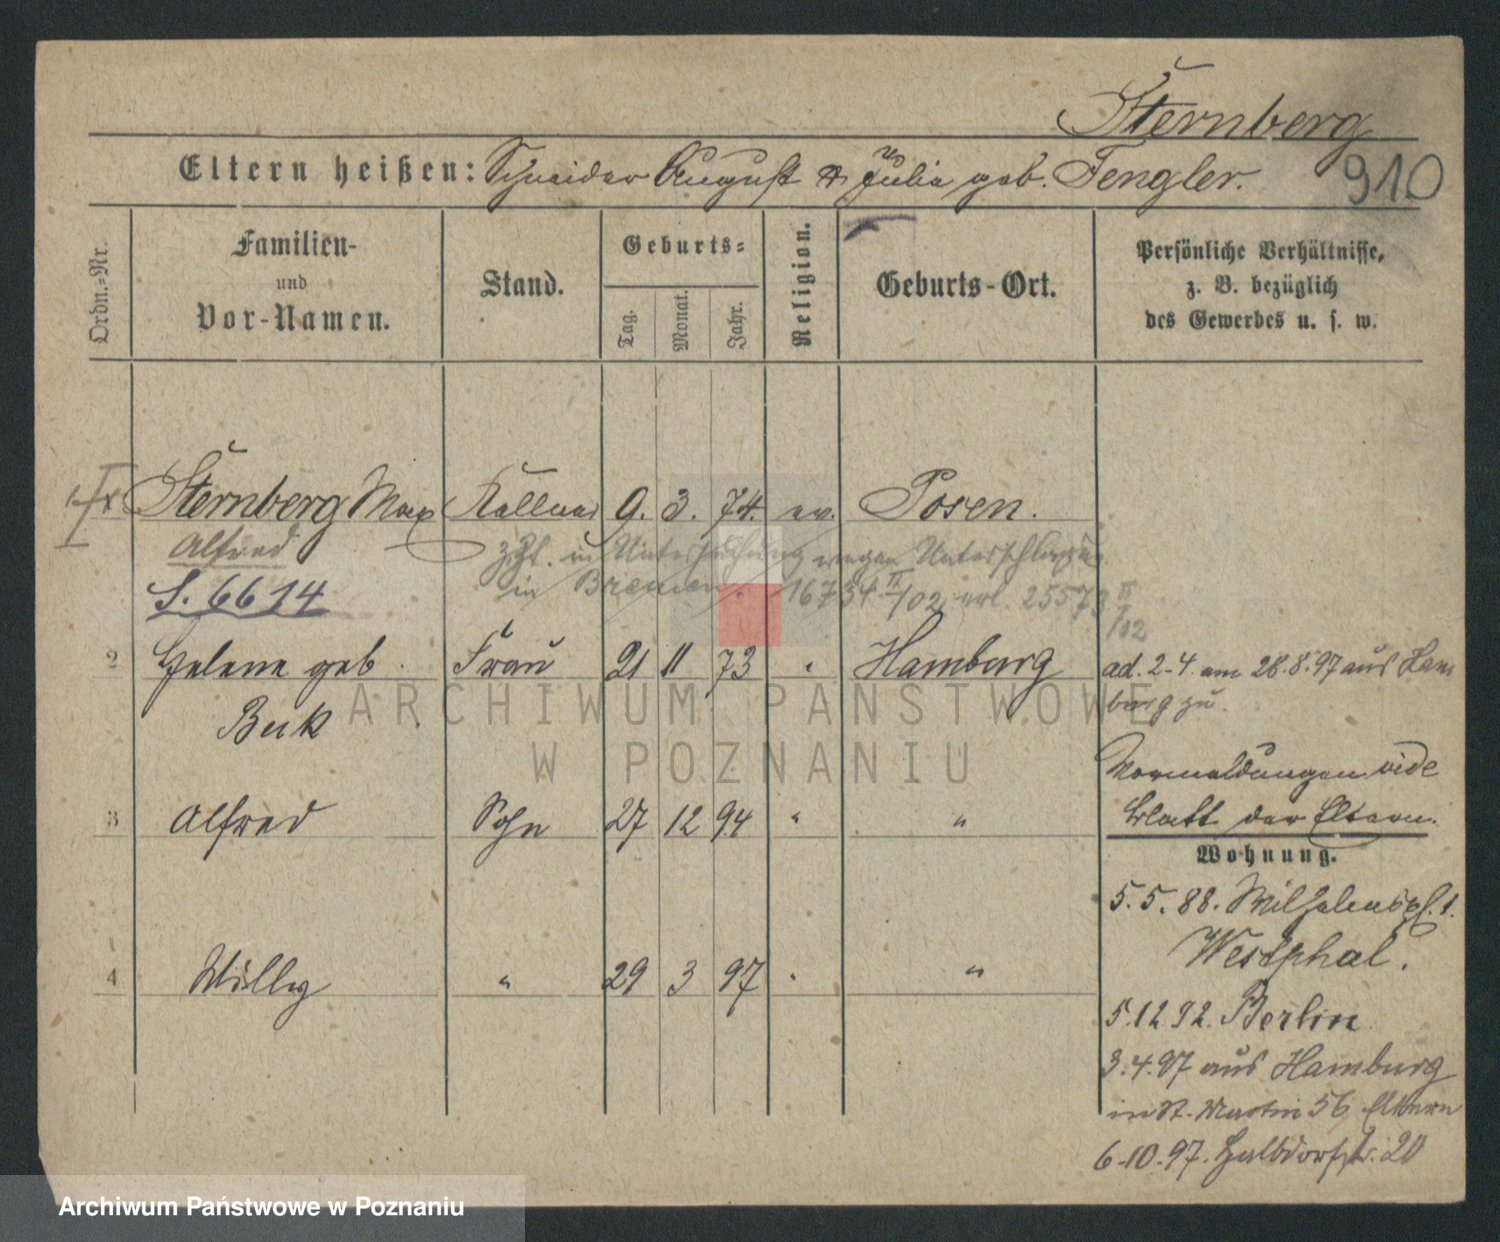 Sternberg
Eltern heißen: Schneider August & Julia geb. Fengler.
910
Ordn.-Nr.
Familien-
und
Vor-Namen.
Stand.
Geburts-
Tag.
Monat.
Jahr.
Religion.
Geburts-Ort.
Persönliche Verhältnisse,
z. B. bezüglich
des Gewerbes u. s. w.
Sternberg Max Kellner 9. 3. 74. ev. Posen.
Alfred
z. Zt. in Untersuchung wegen Unterschlagung
S. 6614
in Bremen. 16734 II/02 erl. 25573 II/02
2 Helene geb. Frau 21 11 73 " Hamburg
Buk
ad. 2-4 am 28.8.97 aus Ham
burg zu.
ARCHIWUM PAŃSTWOWE
W POZNANIU
Vormeldungen vide
Blatt der Eltern.
3 Alfred Sohn 27 12 94 " "
Wohnung.
5.5.88. Wilhelmspl. 1.
Westphal.
4 Willy " 29 3 97 " "
5.12 92. Berlin
3.4.97 aus Hamburg
in St. Martin 56 Eltern
6.10.97. Halbdorfstr. 20
Archiwum Państwowe w Poznaniu